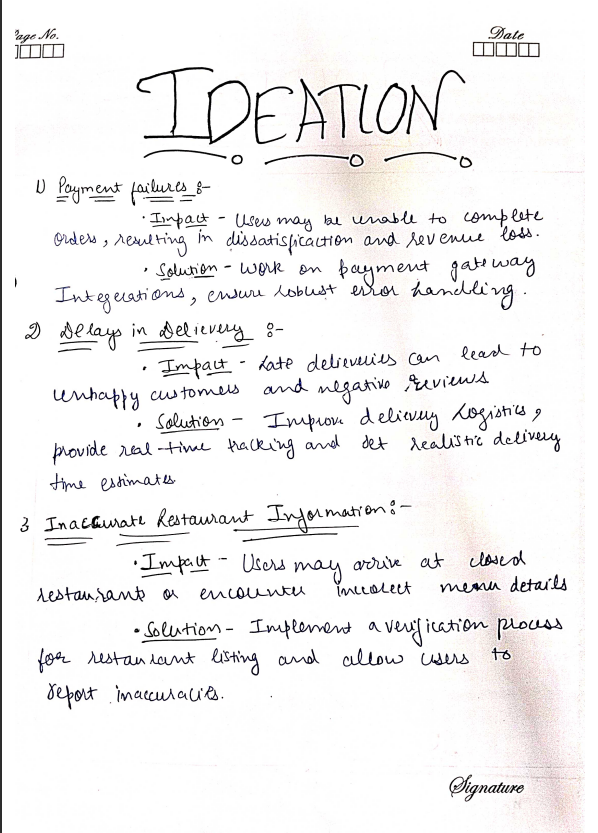 Page No.
Date
IDEATION
1) Payment failures :-
· Impact - Users may be unable to complete
orders, resulting in dissatisfication and revenue loss.
· Solution - Work on payment gateway
Integerations, ensure robust error handling.
2) Delays in Delievery :-
· Impact - Late delieveries can lead to
unhappy customers and negative reviews
· Solution - Improve delievery logistics,
provide real-time tracking and set realistic delivery
time estimates
3 Inaccurate Restaurant Information :-
· Impact - Users may arrive at closed
restaurants or encounter incorrect menu details
· Solution - Implement a verification process
for restaurant listing and allow users to
report inaccuracies.
Signature